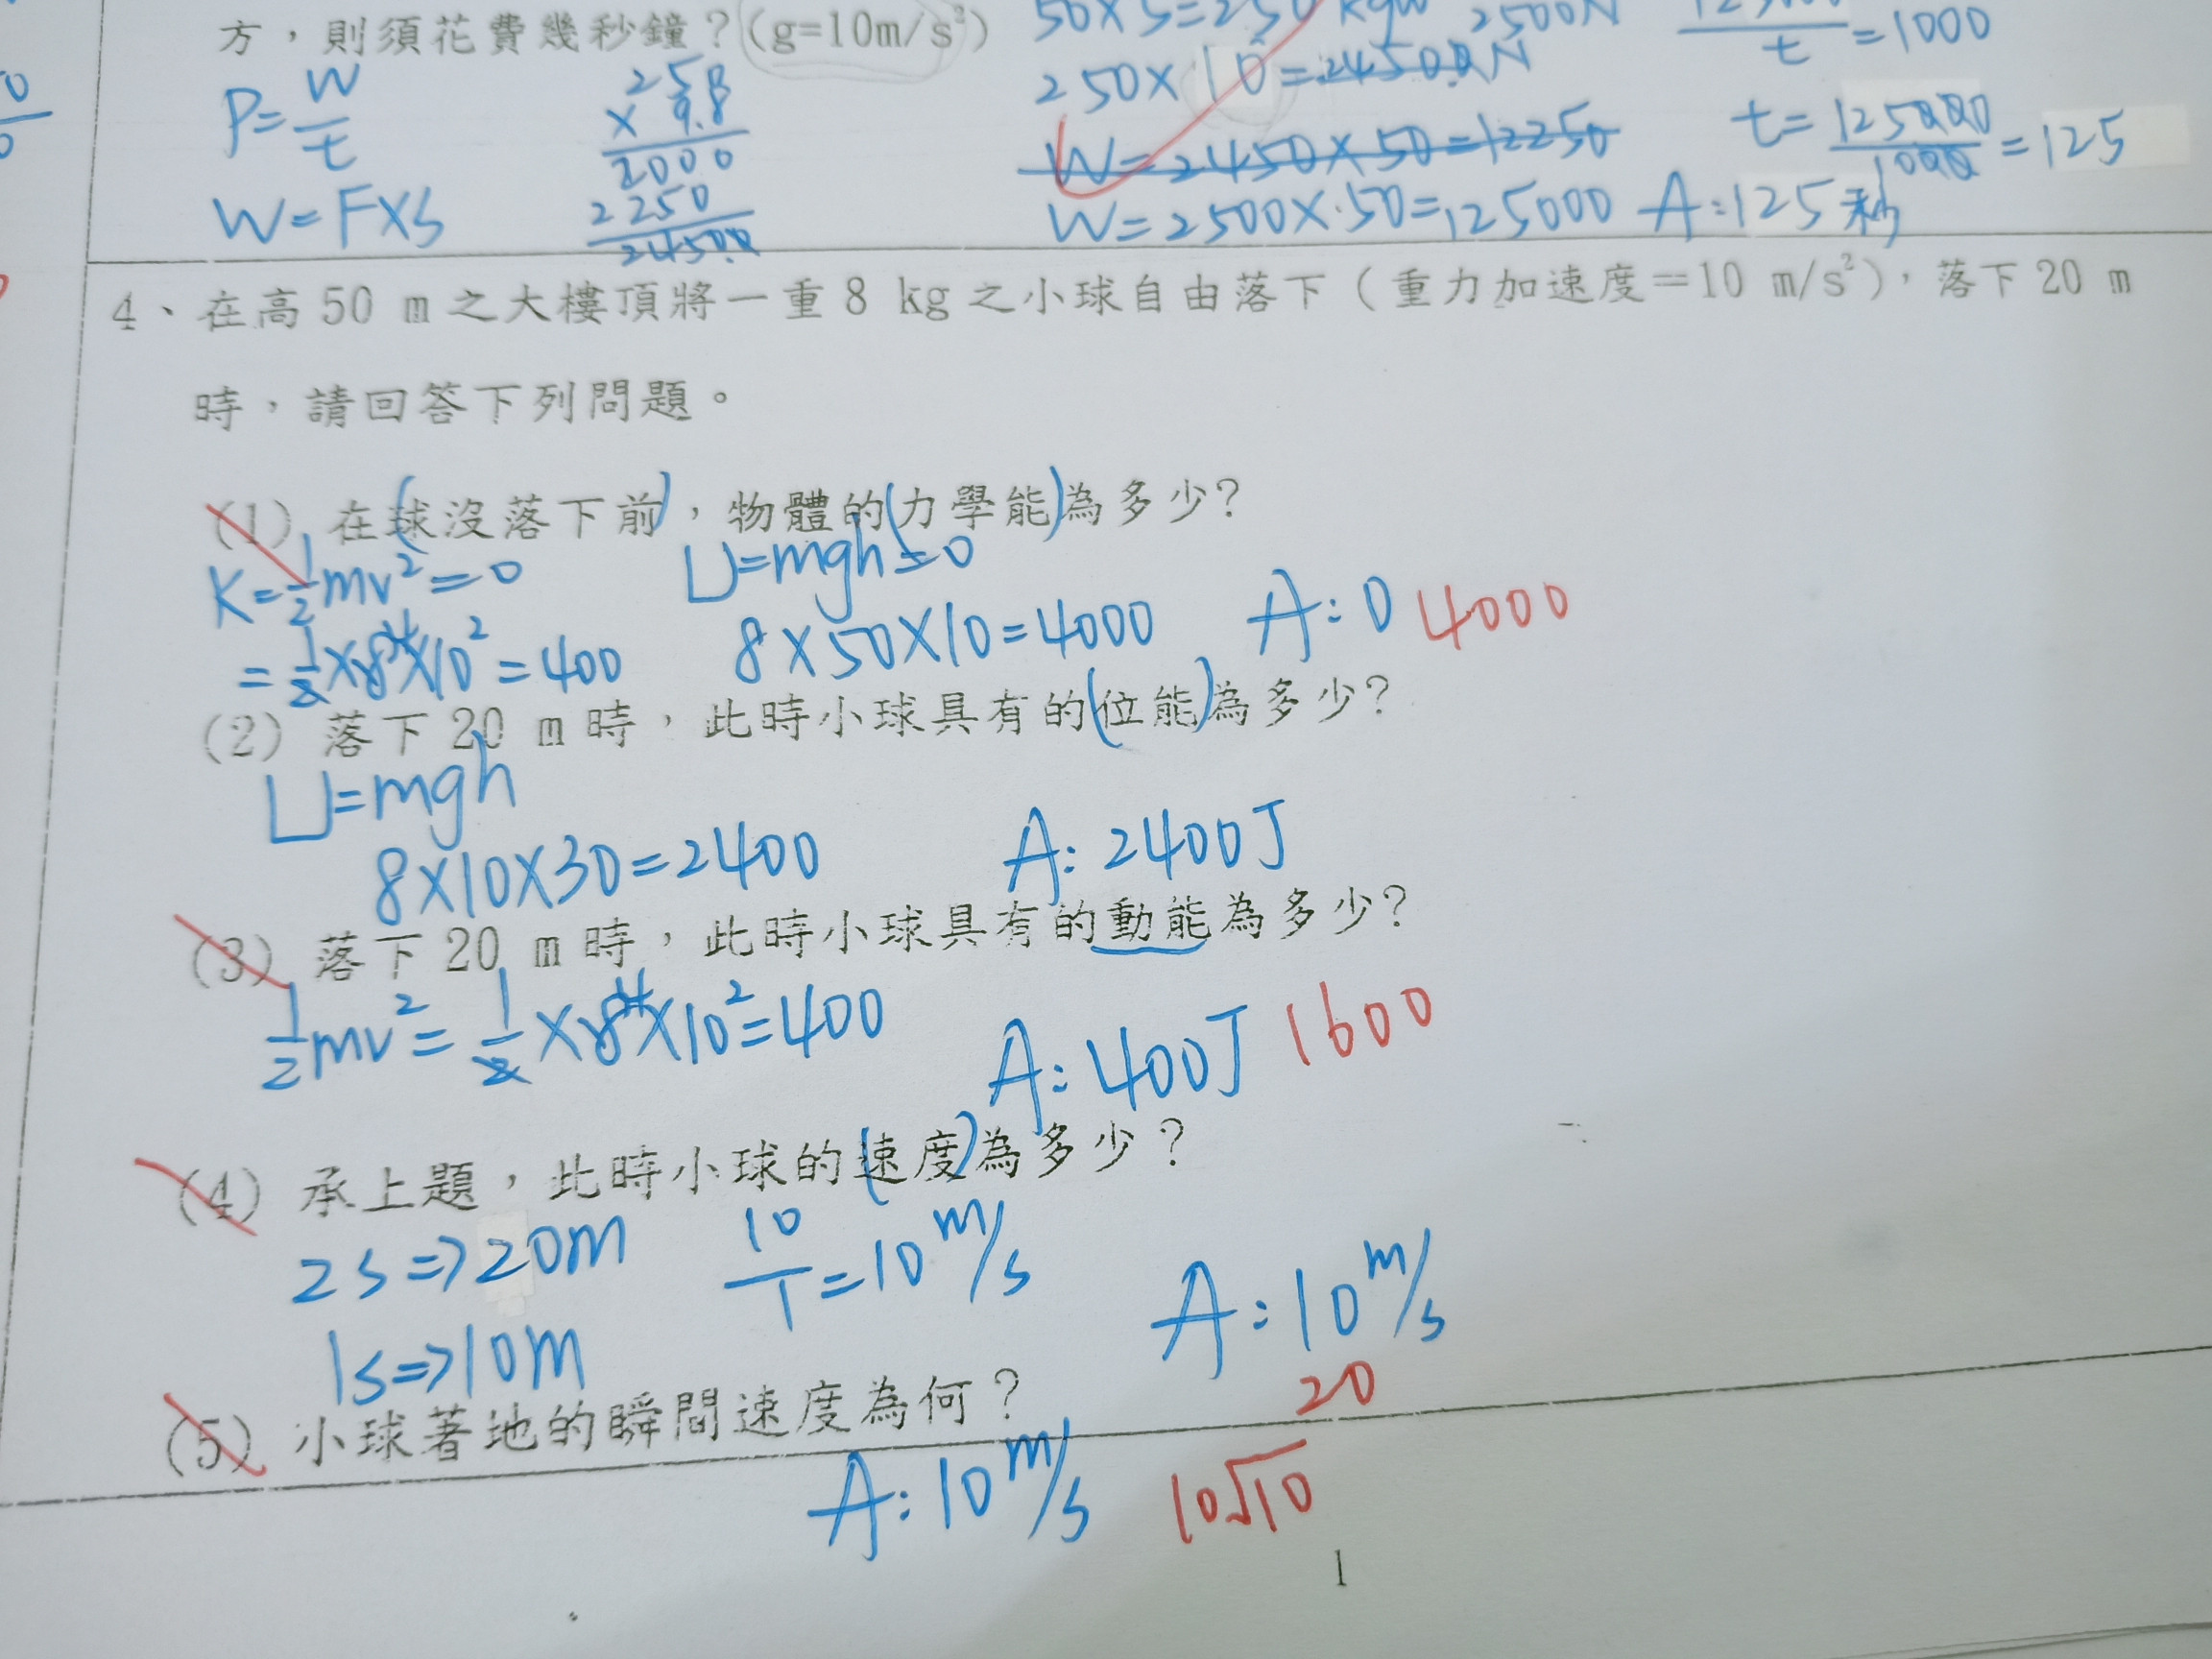 方，則須花費幾秒鐘？(g=10m/s²)
50×5=250 kgw 2500N
250×10=2450.0N
=1000
t
P=W/t
258
×9.8
2000
2250
2450.0
W=2450×50=12250
t=125000/1000=125
W=F×S
W=2500×50=125000 A:125秒
4、在高 50 m 之大樓頂將一重 8 kg 之小球自由落下（重力加速度＝10 m/s²），落下 20 m
時，請回答下列問題。
(1) 在(球沒落下前)，物體的(力學能)為多少?
K=1/2mv²=0 U=mgh=0
=1/2×8×10²=400 8×50×10=4000 A:0 4000
(2) 落下 20 m 時，此時小球具有的(位能)為多少?
U=mgh
8×10×30=2400 A:2400J
(3) 落下 20 m 時，此時小球具有的動能為多少?
1/2mv²=1/2×8×10²=400 A:400J 1600
(4) 承上題，此時小球的(速度)為多少？
2s=>20m 10/1=10m/s A:10m/s
1s=>10m 20
(5) 小球著地的瞬間速度為何？
A:10m/s 10√10
1